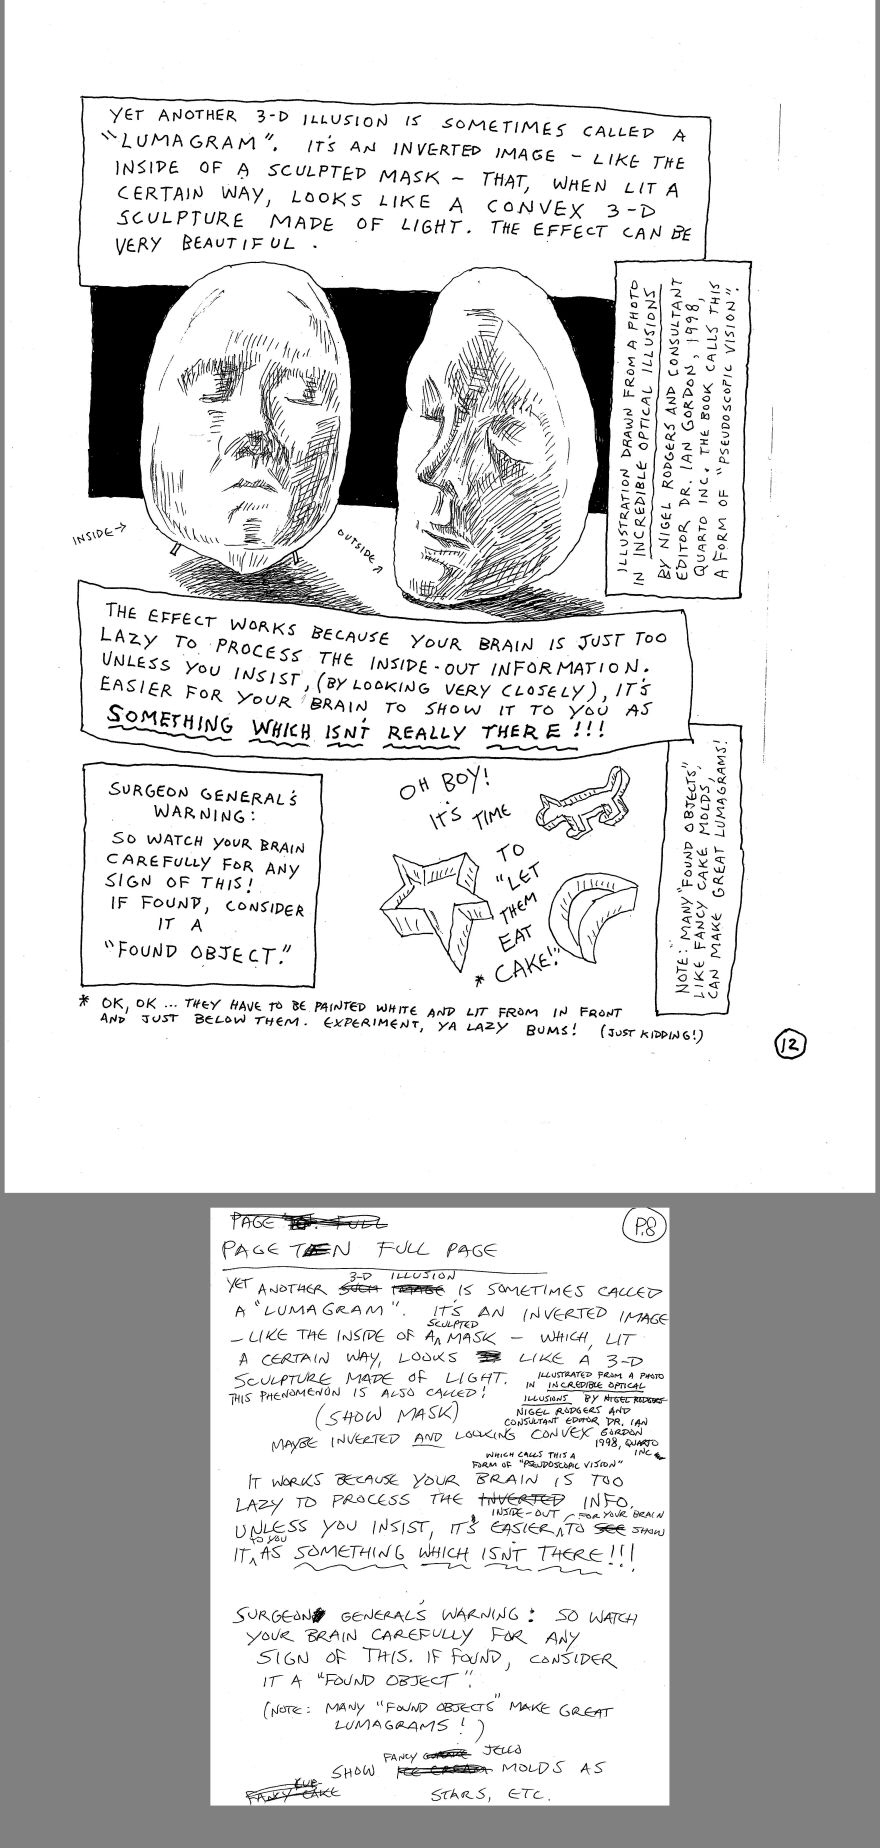 YET ANOTHER 3-D ILLUSION IS SOMETIMES CALLED A
"LUMAGRAM". IT'S AN INVERTED IMAGE – LIKE THE
INSIDE OF A SCULPTED MASK – THAT, WHEN LIT A
CERTAIN WAY, LOOKS LIKE A CONVEX 3-D
SCULPTURE MADE OF LIGHT. THE EFFECT CAN BE
VERY BEAUTIFUL.
ILLUSTRATION DRAWN FROM A PHOTO
IN INCREDIBLE OPTICAL ILLUSIONS
BY NIGEL RODGERS AND CONSULTANT
EDITOR DR. IAN GORDON, 1998,
QUARTO INC. THE BOOK CALLS THIS
A FORM OF "PSEUDOSCOPIC VISION".
INSIDE →
OUTSIDE →
THE EFFECT WORKS BECAUSE YOUR BRAIN IS JUST TOO
LAZY TO PROCESS THE INSIDE-OUT INFORMATION.
UNLESS YOU INSIST, (BY LOOKING VERY CLOSELY), IT'S
EASIER FOR YOUR BRAIN TO SHOW IT TO YOU AS
SOMETHING WHICH ISN'T REALLY THERE!!!
SURGEON GENERAL'S
WARNING:
SO WATCH YOUR BRAIN
CAREFULLY FOR ANY
SIGN OF THIS!
IF FOUND, CONSIDER
IT A
"FOUND OBJECT."
OH BOY!
IT'S TIME
TO
"LET
THEM
EAT
* CAKE!"
NOTE: MANY "FOUND OBJECTS"
LIKE FANCY CAKE MOLDS,
CAN MAKE GREAT LUMAGRAMS!
* OK, OK ... THEY HAVE TO BE PAINTED WHITE AND LIT FROM IN FRONT
AND JUST BELOW THEM. EXPERIMENT, YA LAZY BUMS! (JUST KIDDING!)
12
PAGE FULL
P.8
PAGE TEN FULL PAGE
3-D ILLUSION
YET ANOTHER SUCH IMAGE IS SOMETIMES CALLED
A "LUMAGRAM". IT'S AN INVERTED IMAGE
SCULPTED
– LIKE THE INSIDE OF A MASK – WHICH, LIT
A CERTAIN WAY, LOOKS LIKE A 3-D
SCULPTURE MADE OF LIGHT.
THIS PHENOMENON IS ALSO CALLED!
ILLUSTRATED FROM A PHOTO
IN INCREDIBLE OPTICAL
ILLUSIONS BY NIGEL RODGERS
NIGEL RODGERS AND
CONSULTANT EDITOR DR. IAN
GORDON
1998, QUARTO
INC.
WHICH CALLS THIS A
FORM OF "PSEUDOSCOPIC VISION"
(SHOW MASK)
MAYBE INVERTED AND LOOKING CONVEX
IT WORKS BECAUSE YOUR BRAIN IS TOO
LAZY TO PROCESS THE INVERTED INFO.
INSIDE-OUT FOR YOUR BRAIN
UNLESS YOU INSIST, IT'S EASIER TO SEE SHOW
TO YOU
IT AS SOMETHING WHICH ISN'T THERE!!!
SURGEON GENERAL'S WARNING: SO WATCH
YOUR BRAIN CAREFULLY FOR ANY
SIGN OF THIS. IF FOUND, CONSIDER
IT A "FOUND OBJECT".
(NOTE: MANY "FOUND OBJECTS" MAKE GREAT
LUMAGRAMS!)
FANCY JELLO
SHOW ICE CREAM MOLDS AS
FANCY CAKE STARS, ETC.